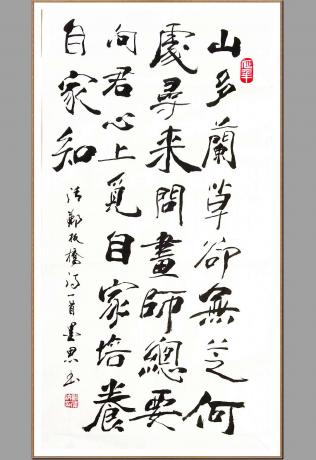 山多蘭草卻無芝何
處尋來問畫師總要
向君心上覓自家培養
自家知
清鄭板橋詩一首墨思书